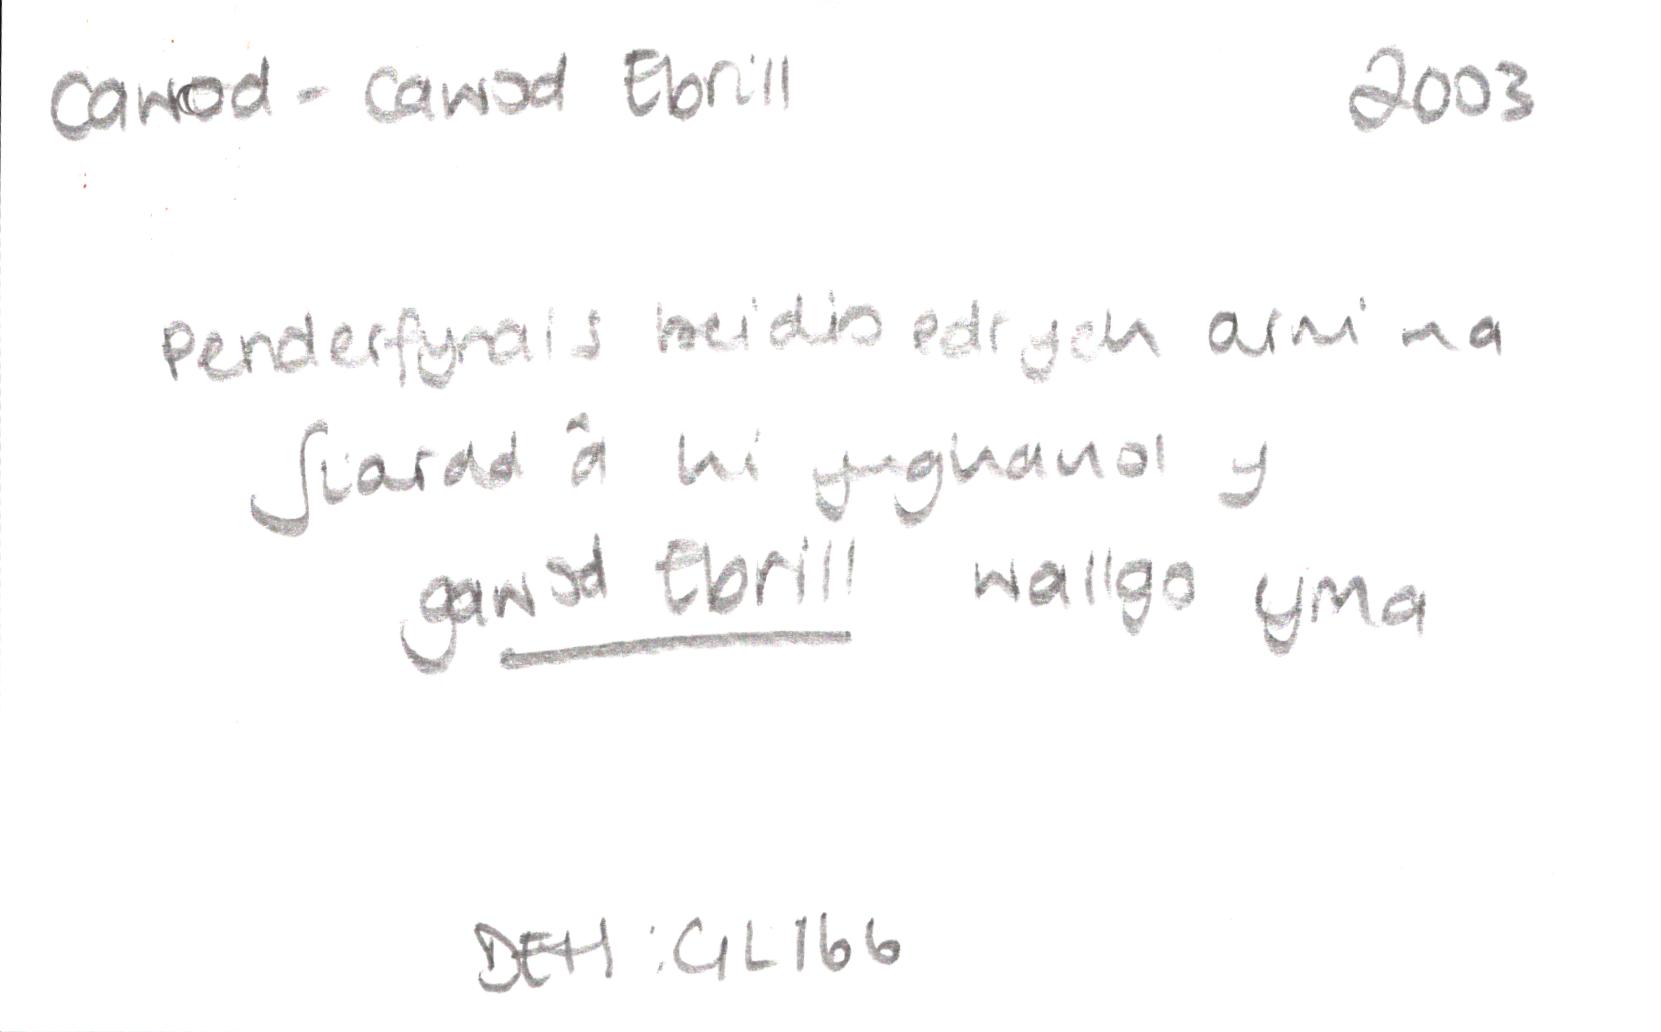 Cawod - Cawod Ebrill 2003
Penderfynais beidio edrych arni na
siarad â hi ynghanol y
gawod Ebrill wallgo yma
DEH : GL 166